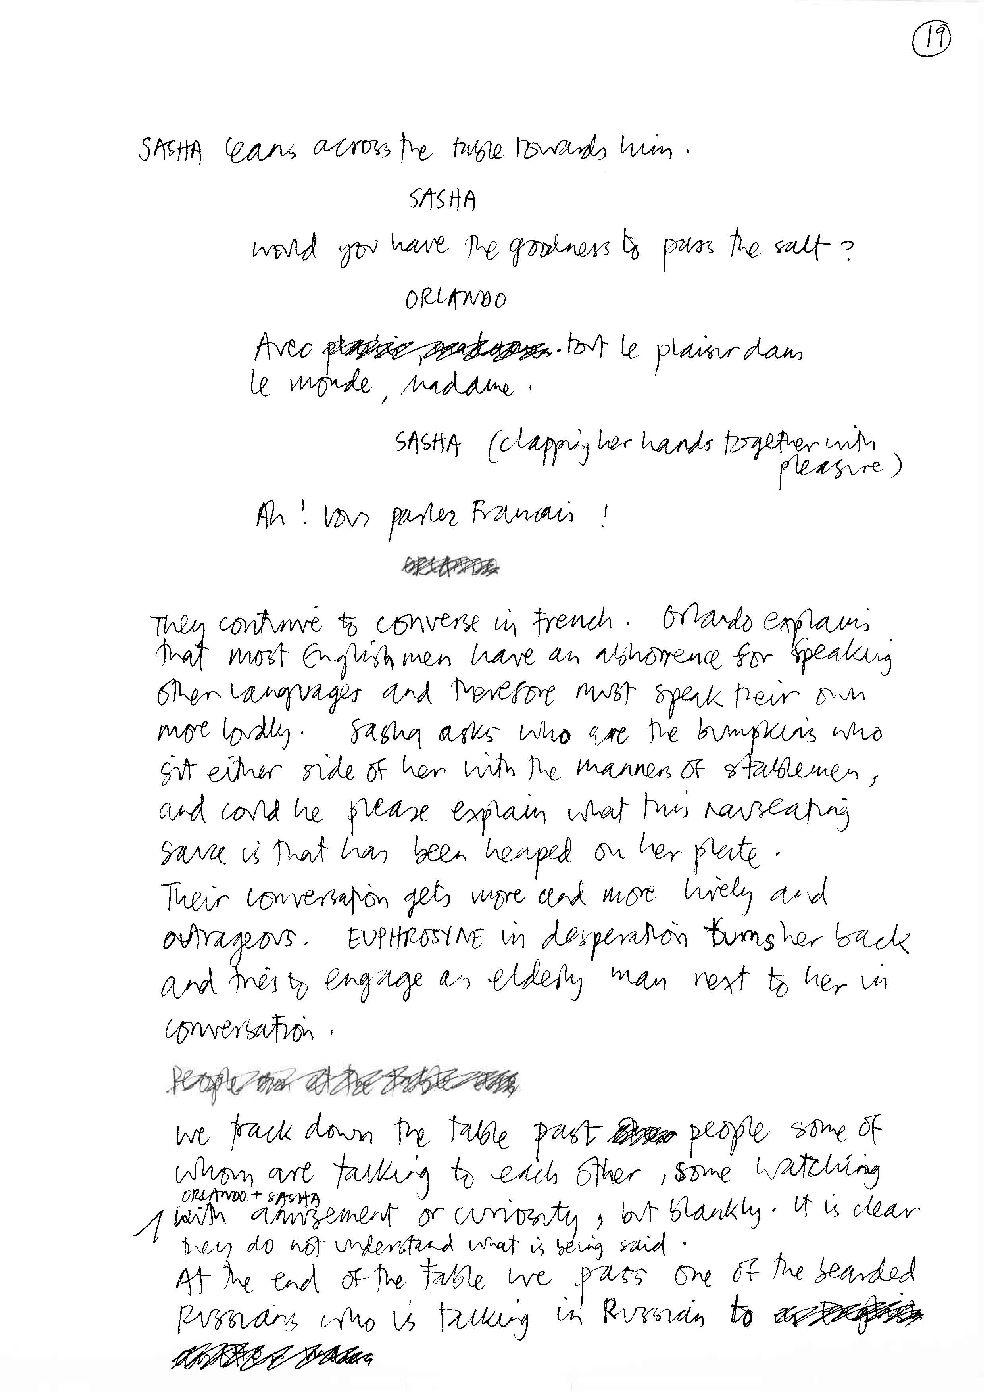 19
SASHA leans across the table towards him.
SASHA
would you have the goodness to pass the salt?
ORLANDO
Avec tout le plaisir dans
le monde, Madame.
SASHA (clapping her hands together with
pleasure)
Ah! Vous parlez Francais!
They continue to converse in French. Orlando explains
that most Englishmen have an abhorrence for speaking
other languages and therefore must speak their own
more loudly. Sasha asks who are the bumpkins who
sit either side of her with the manners of stablemen,
and could he please explain what this nauseating
sauce is that has been heaped on her plate.
Their conversation gets more and more lively and
outrageous. EUPHROSYNE in desperation turns her back
and tries to engage an elderly man next to her in
conversation.
We track down the table past people some of
whom are talking to each other, some watching
ORLANDO + SASHA
with amusement or curiosity, but blankly. It is clear
they do not understand what is being said.
At the end of the table we pass one of the bearded
Russians who is talking in Russian to